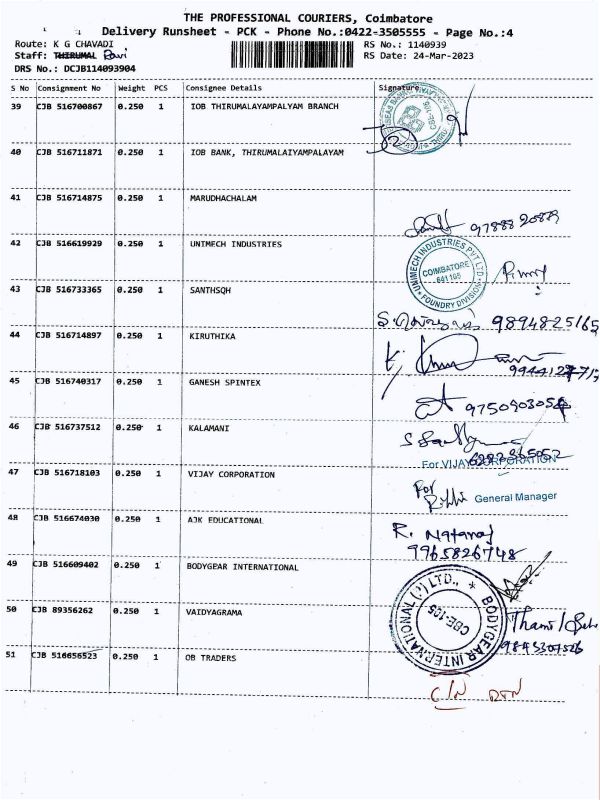 THE PROFESSIONAL COURIERS, Coimbatore
Delivery Runsheet - PCK - Phone No.:0422-3505555 - Page No.:4
Route: K G CHAVADI
RS No.: 1140939
Staff: THIRUMAL Ravi
RS Date: 24-Mar-2023
DRS No.: DCJB114093904
S No Consignment No Weight PCS Consignee Details Signature
39 CJB 516700867 0.250 1 IOB THIRUMALAYAMPALYAM BRANCH
40 CJB 516711871 0.250 1 IOB BANK, THIRUMALAIYAMPALAYAM
41 CJB 516714875 0.250 1 MARUDHACHALAM
9788820889
42 CJB 516619929 0.250 1 UNIMECH INDUSTRIES
UNIMECH INDUSTRIES PVT LTD
COIMBATORE
641 105
FOUNDRY DIVISION
43 CJB 516733365 0.250 1 SANTHSQH
9894825165
44 CJB 516714897 0.250 1 KIRUTHIKA
45 CJB 516740317 0.250 1 GANESH SPINTEX
9750903054
46 CJB 516737512 0.250 1 KALAMANI
For VIJAY CORPORATION
47 CJB 516718103 0.250 1 VIJAY CORPORATION
For
General Manager
48 CJB 516674030 0.250 1 AJK EDUCATIONAL
R. Nataraj
9965826748
49 CJB 516609402 0.250 1 BODYGEAR INTERNATIONAL
BODYGEAR INTERNATIONAL (P) LTD.,
CBE-105
50 CJB 89356262 0.250 1 VAIDYAGRAMA
51 CJB 516656523 0.250 1 OB TRADERS
C/N RTN